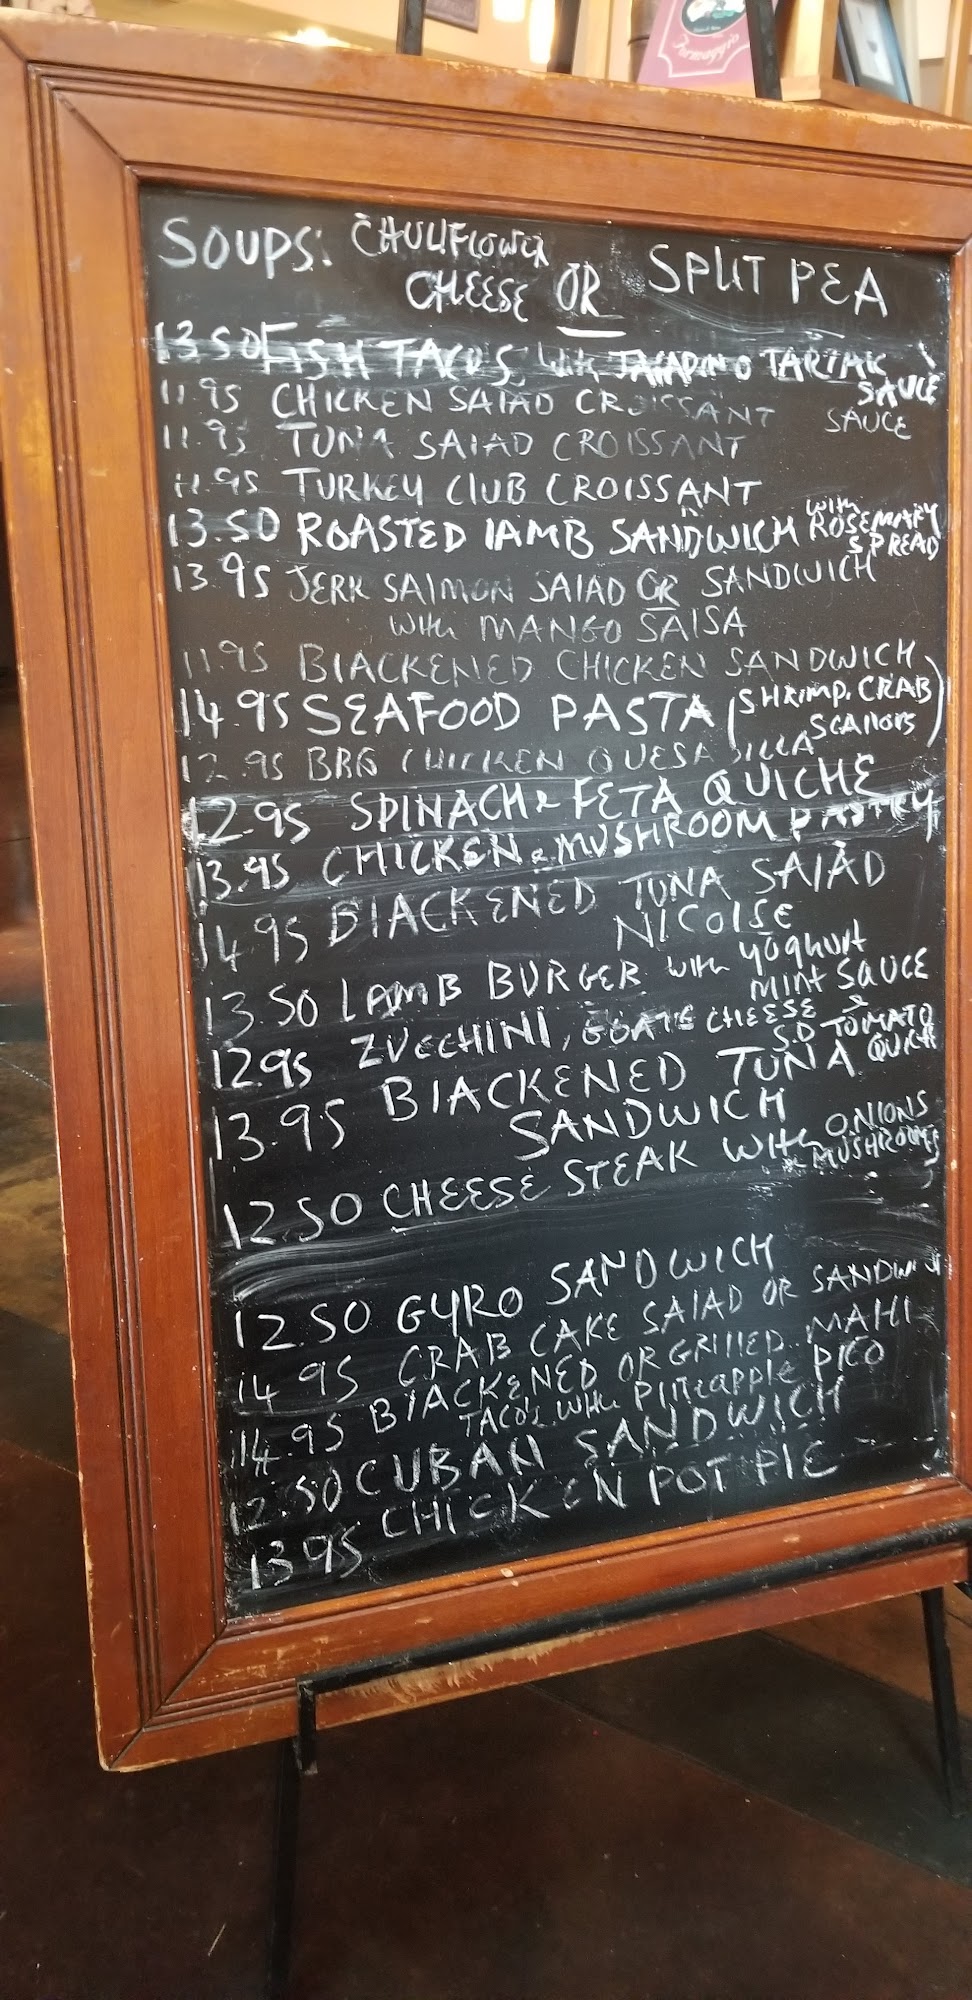 SOUPS: CAULIFLOWER CHEESE OR SPLIT PEA
13.50 FISH TACOS with JALAPINO TARTAR SAUCE
11.95 CHICKEN SALAD CROISSANT SAUCE
11.95 TUNA SALAD CROISSANT
11.95 TURKEY CLUB CROISSANT
13.50 ROASTED LAMB SANDWICH with ROSEMARY SPREAD
13.95 JERK SALMON SALAD OR SANDWICH
with MANGO SALSA
11.95 BLACKENED CHICKEN SANDWICH
14.95 SEAFOOD PASTA (SHRIMP, CRAB SCALLOPS)
12.95 BBQ CHICKEN QUESADILLA
12.95 SPINACH & FETA QUICHE
13.95 CHICKEN & MUSHROOM PASTRY
14.95 BLACKENED TUNA SALAD
NICOISE
13.50 LAMB BURGER with yoghurt mint SAUCE
12.95 ZUCCHINI, GOATS CHEESE & S.D TOMATO QUICHE
13.95 BLACKENED TUNA
SANDWICH
12.50 CHEESE STEAK with ONIONS MUSHROOMS
12.50 GYRO SANDWICH
14.95 CRAB CAKE SALAD OR SANDWICH
14.95 BLACKENED OR GRILLED MAHI
TACO'S with PINEapple PICO
12.50 CUBAN SANDWICH
13.95 CHICKEN POT PIE